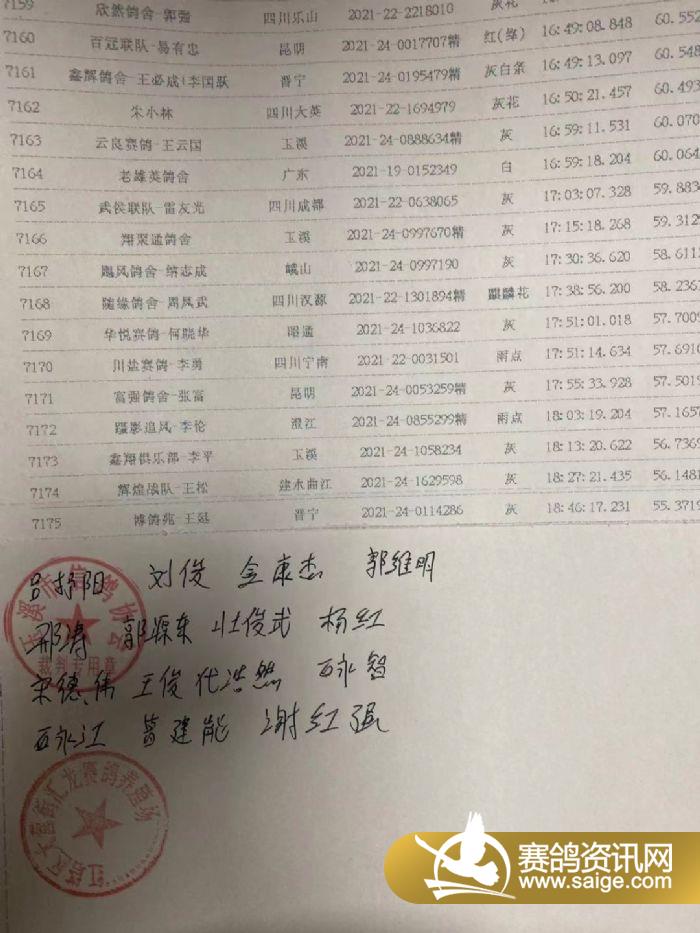 7159 欣然鸽舍-郭强 四川乐山 2021-22-2218010 灰花
7160 百冠联队-易有忠 昆明 2021-24-0017707精 红(绛) 16:49:08.848 60.552
7161 鑫辉鸽舍-王必成(李国跃 晋宁 2021-24-0195479精 灰白条 16:49:13.097 60.548
7162 朱小林 四川大英 2021-22-1694979 灰花 16:50:21.457 60.493
7163 云良赛鸽-王云国 玉溪 2021-24-0888634精 灰 16:59:11.531 60.070
7164 老雄英鸽舍 广东 2021-19-0152349 白 16:59:18.204 60.064
7165 武侯联队-雷友光 四川成都 2021-22-0638065 灰 17:03:07.328 59.883
7166 翔聚通鸽舍 玉溪 2021-24-0997670精 灰 17:15:18.268 59.312
7167 飓风鸽舍-绪志成 峨山 2021-24-0997190 灰 17:30:36.620 58.611
7168 随缘鸽舍-周凤武 四川汉源 2021-22-1301894精 麒麟花 17:38:56.200 58.236
7169 华悦赛鸽-何晓华 昭通 2021-24-1036822 灰 17:51:01.018 57.700
7170 川盐赛鸽-李勇 四川宁南 2021-22-0031501 雨点 17:51:14.634 57.691
7171 富强鸽舍-张富 昆明 2021-24-0053259精 灰 17:55:33.928 57.501
7172 蹑影追风-李伦 澄江 2021-24-0855299精 雨点 18:03:19.204 57.165
7173 鑫翔俱乐部-李平 玉溪 2021-24-1058234 灰 18:13:20.622 56.736
7174 辉煌战队-王松 建水曲江 2021-24-1629598 灰 18:27:21.435 56.148
7175 博鸽苑-王廷 晋宁 2021-24-0114286 灰 18:46:17.231 55.371
吕抒阳 刘俊 金康杰 郭维明
玉溪市信鸽协会
裁判专用章
邢涛 郭源东 杜俊武 杨红
宋德伟 王俊 代浩然 永智
永江 建能 谢红强
红塔区大营街汇龙赛鸽养殖场
赛鸽资讯网
www.saige.com